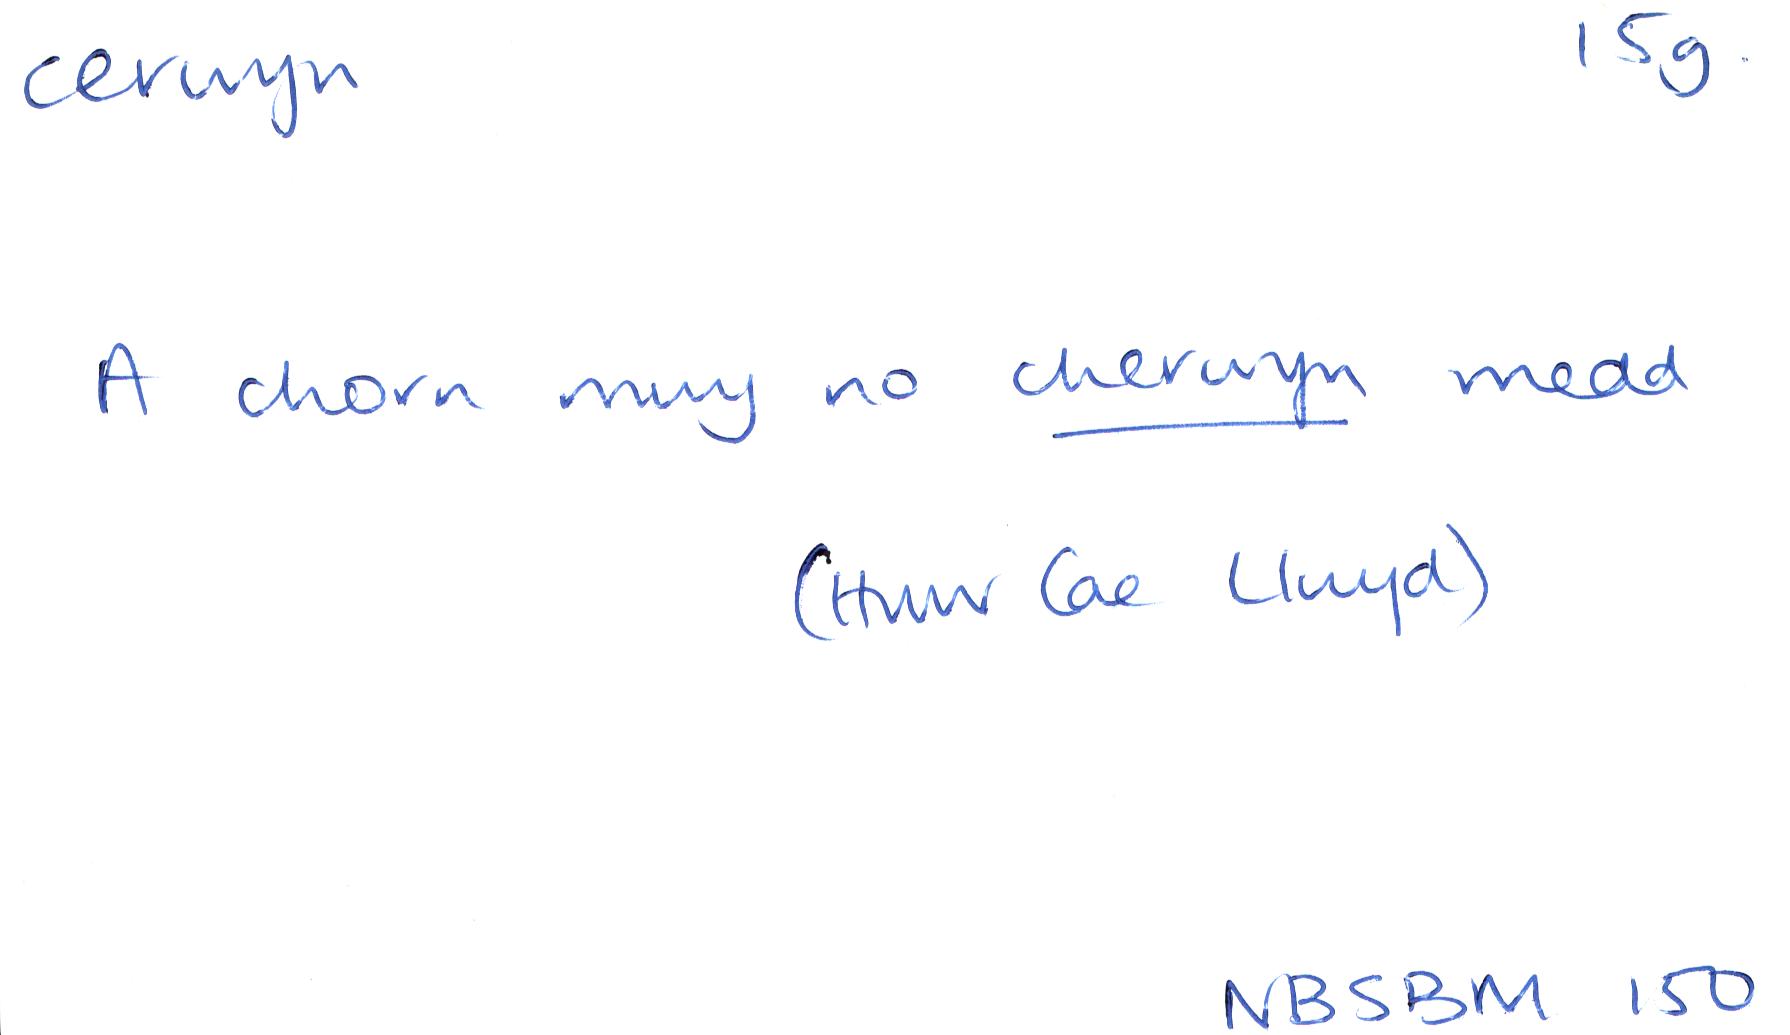 cerwyn 15g.
A chorn mwy no cherwyn medd
(Huw Cae Llwyd)
NBSBM 150